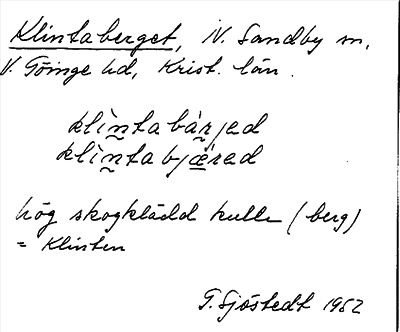 Klintaberget, N. Sandby sn,
V. Göinge hd, Krist. län.
klìn̰tabár̰jed
klìn̰tabjǽred
hög skogklädd kulle (berg)
= Klinten
G. Sjöstedt 1952